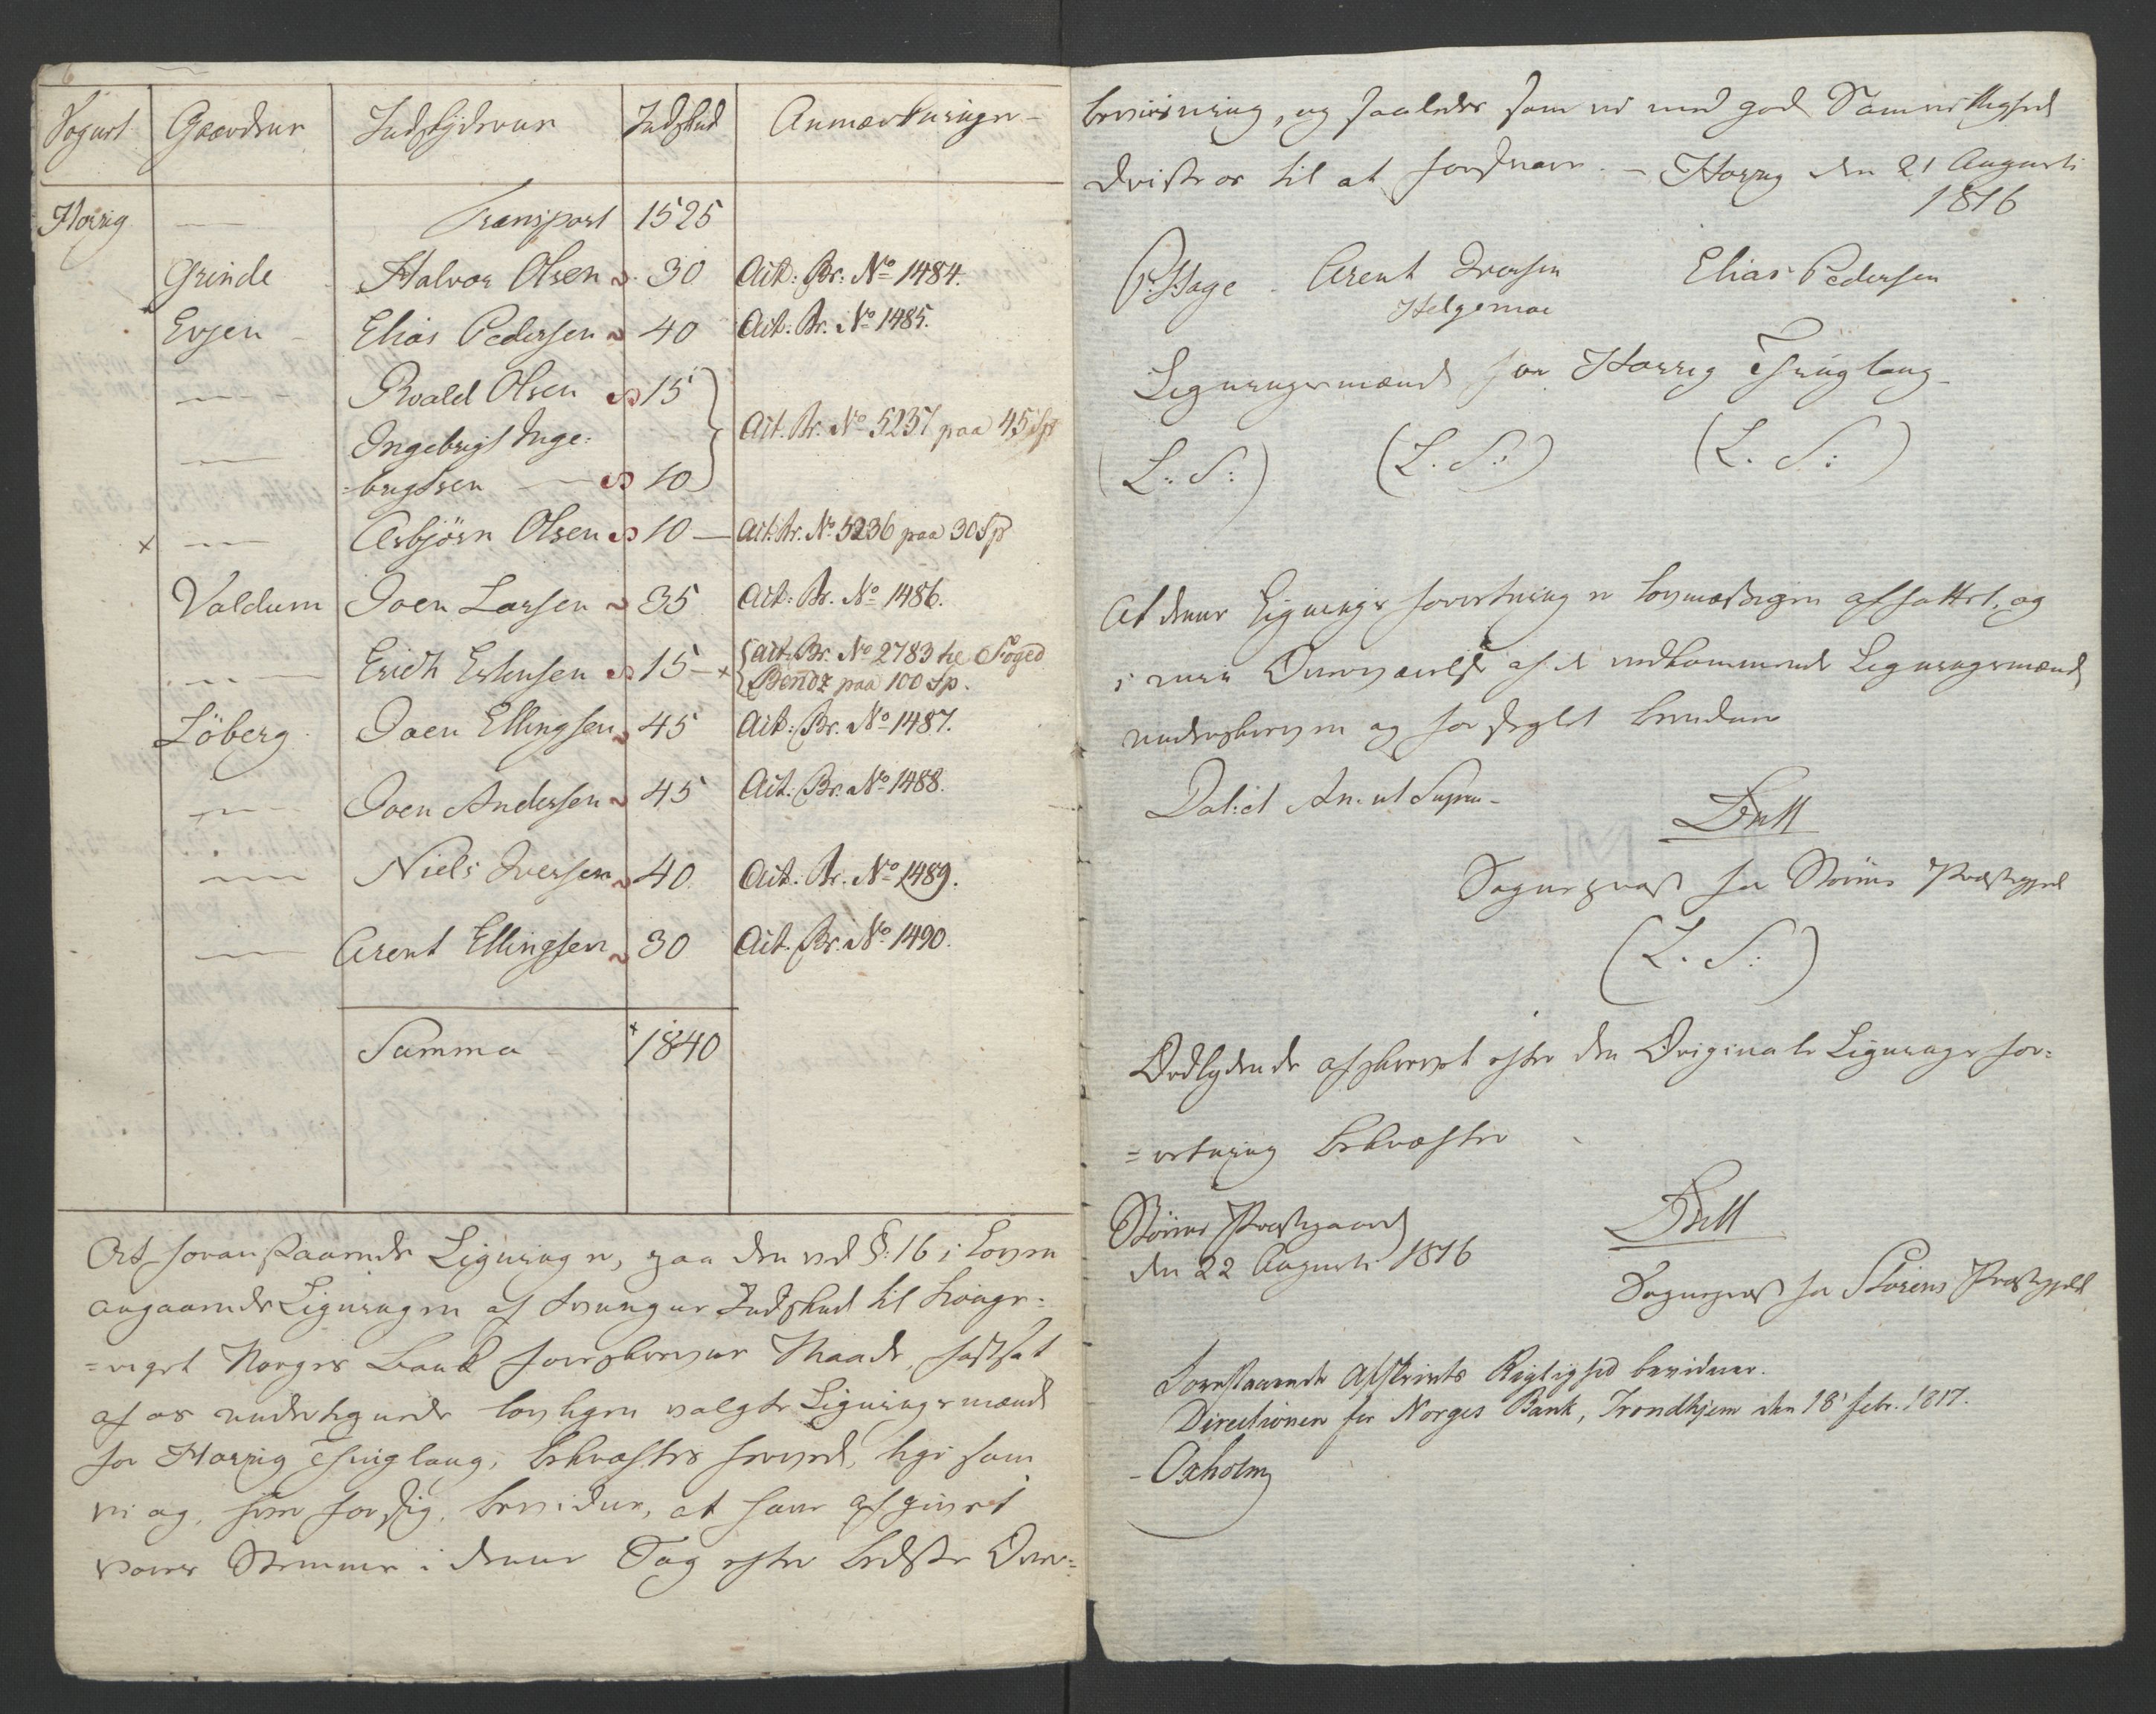 6
Sognet Gaardene Indskydere Indskud Anmærkninger
Horrig — Transport 1525
Grinde Halvor Olsen 30 Act: Br: No 1484.
Evjen Elias Pedersen 40 Act. Br. No 1485.
— Roald Olsen 15
Act. Br. No 5237 paa 45 Sp
— Ingebrigt Inge:
=brigtsen — 10
x — Asbjörn Olsen 10 — Act. Br. No 5236 paa 30 Sp
Valdum Joen Larsen 35 Act: Br. No 1486.
— Erich Estensen 15 — x Act. Br. No 2783 til Foged
Bendz paa 100 Sp.
Löberg Joen Ellingsen 45 Act: Br. No 1487.
— Joen Andersen 45 Act: Br. No 1488.
— Niels Iversen 40. Act: Br. No 1489.
— Arent Ellingsen 30 Act. Br. No 1490.
Summa x 1840
At foranstaaende Ligning er, paa den ved §: 16 i Loven
angaaende Ligningen af tvungne Indskud til Konge:
=riget Norges Bank foreskrevne Maade, fastsat
af os undertegnede lovligen valgte Ligningsmænd
for Horrig Thinglaug, bekræftes herved, lige som
vi og, hver for sig, bevidne, at have afgivet
vores Stemmer i denne Sag efter bedste Over=
beviisning, og saaledes som vi med god Samvittighed
driste os til at forsvare. — Horrig den 21 Augusti
1816
P: Hage Arent Iversen Elias Pedersen
Helgemoe
Ligningsmænd for Horrig Thinglaug
(L: S:) (L. S:) (L. S:)
At denne Lignings forretning er lovmæssigen affattet, og
i min Overværelse af de vedkommende Ligningsmænd
underskreven og forseglet bevidner
Dat: et An. ut Supra
Sognepræst for Störens Præstegield
(L. S:)
Ordlydende afskrevet efter den Originale Lignings for:
=retning bekræfter
Störens Præstegaard
den 22 Augusti 1816
Sognepræst for Störens Præstegield
Foranstaaende Afskrivts Rigtighed bevidner.
Directionen for Norges Bank, Trondhjem den 18 febr. 1817.
Oxholm